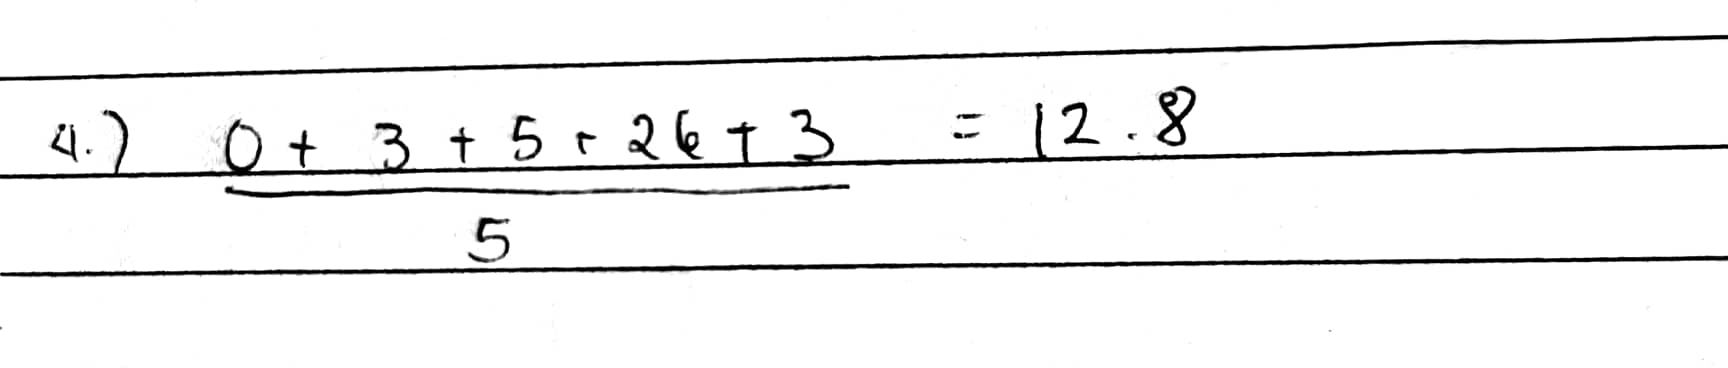 4.) 0 + 3 + 5 + 26 + 3 = 12.8
5